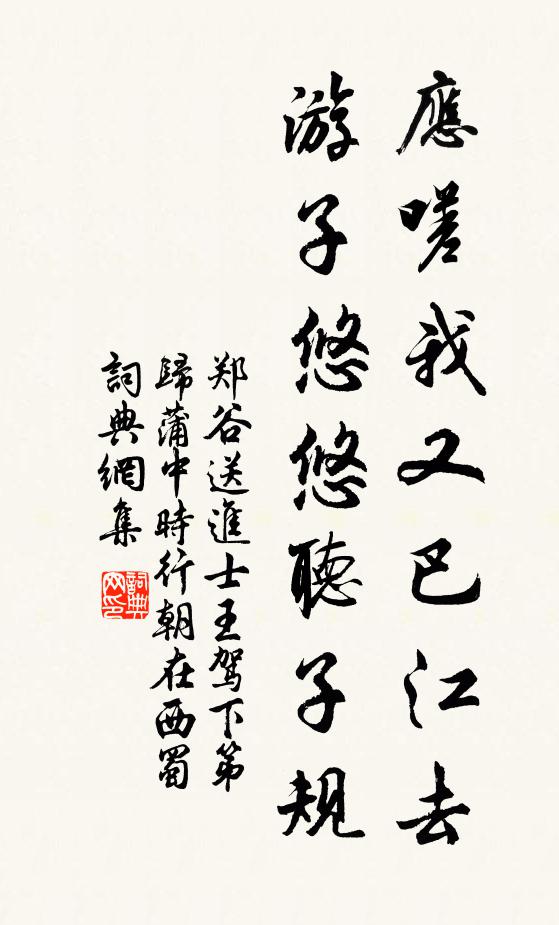 應嗟我又巴江去
游子悠悠聽子規
郑谷送進士王驾下第
歸蒲中時行朝在西蜀
詞典網集
詞典网印